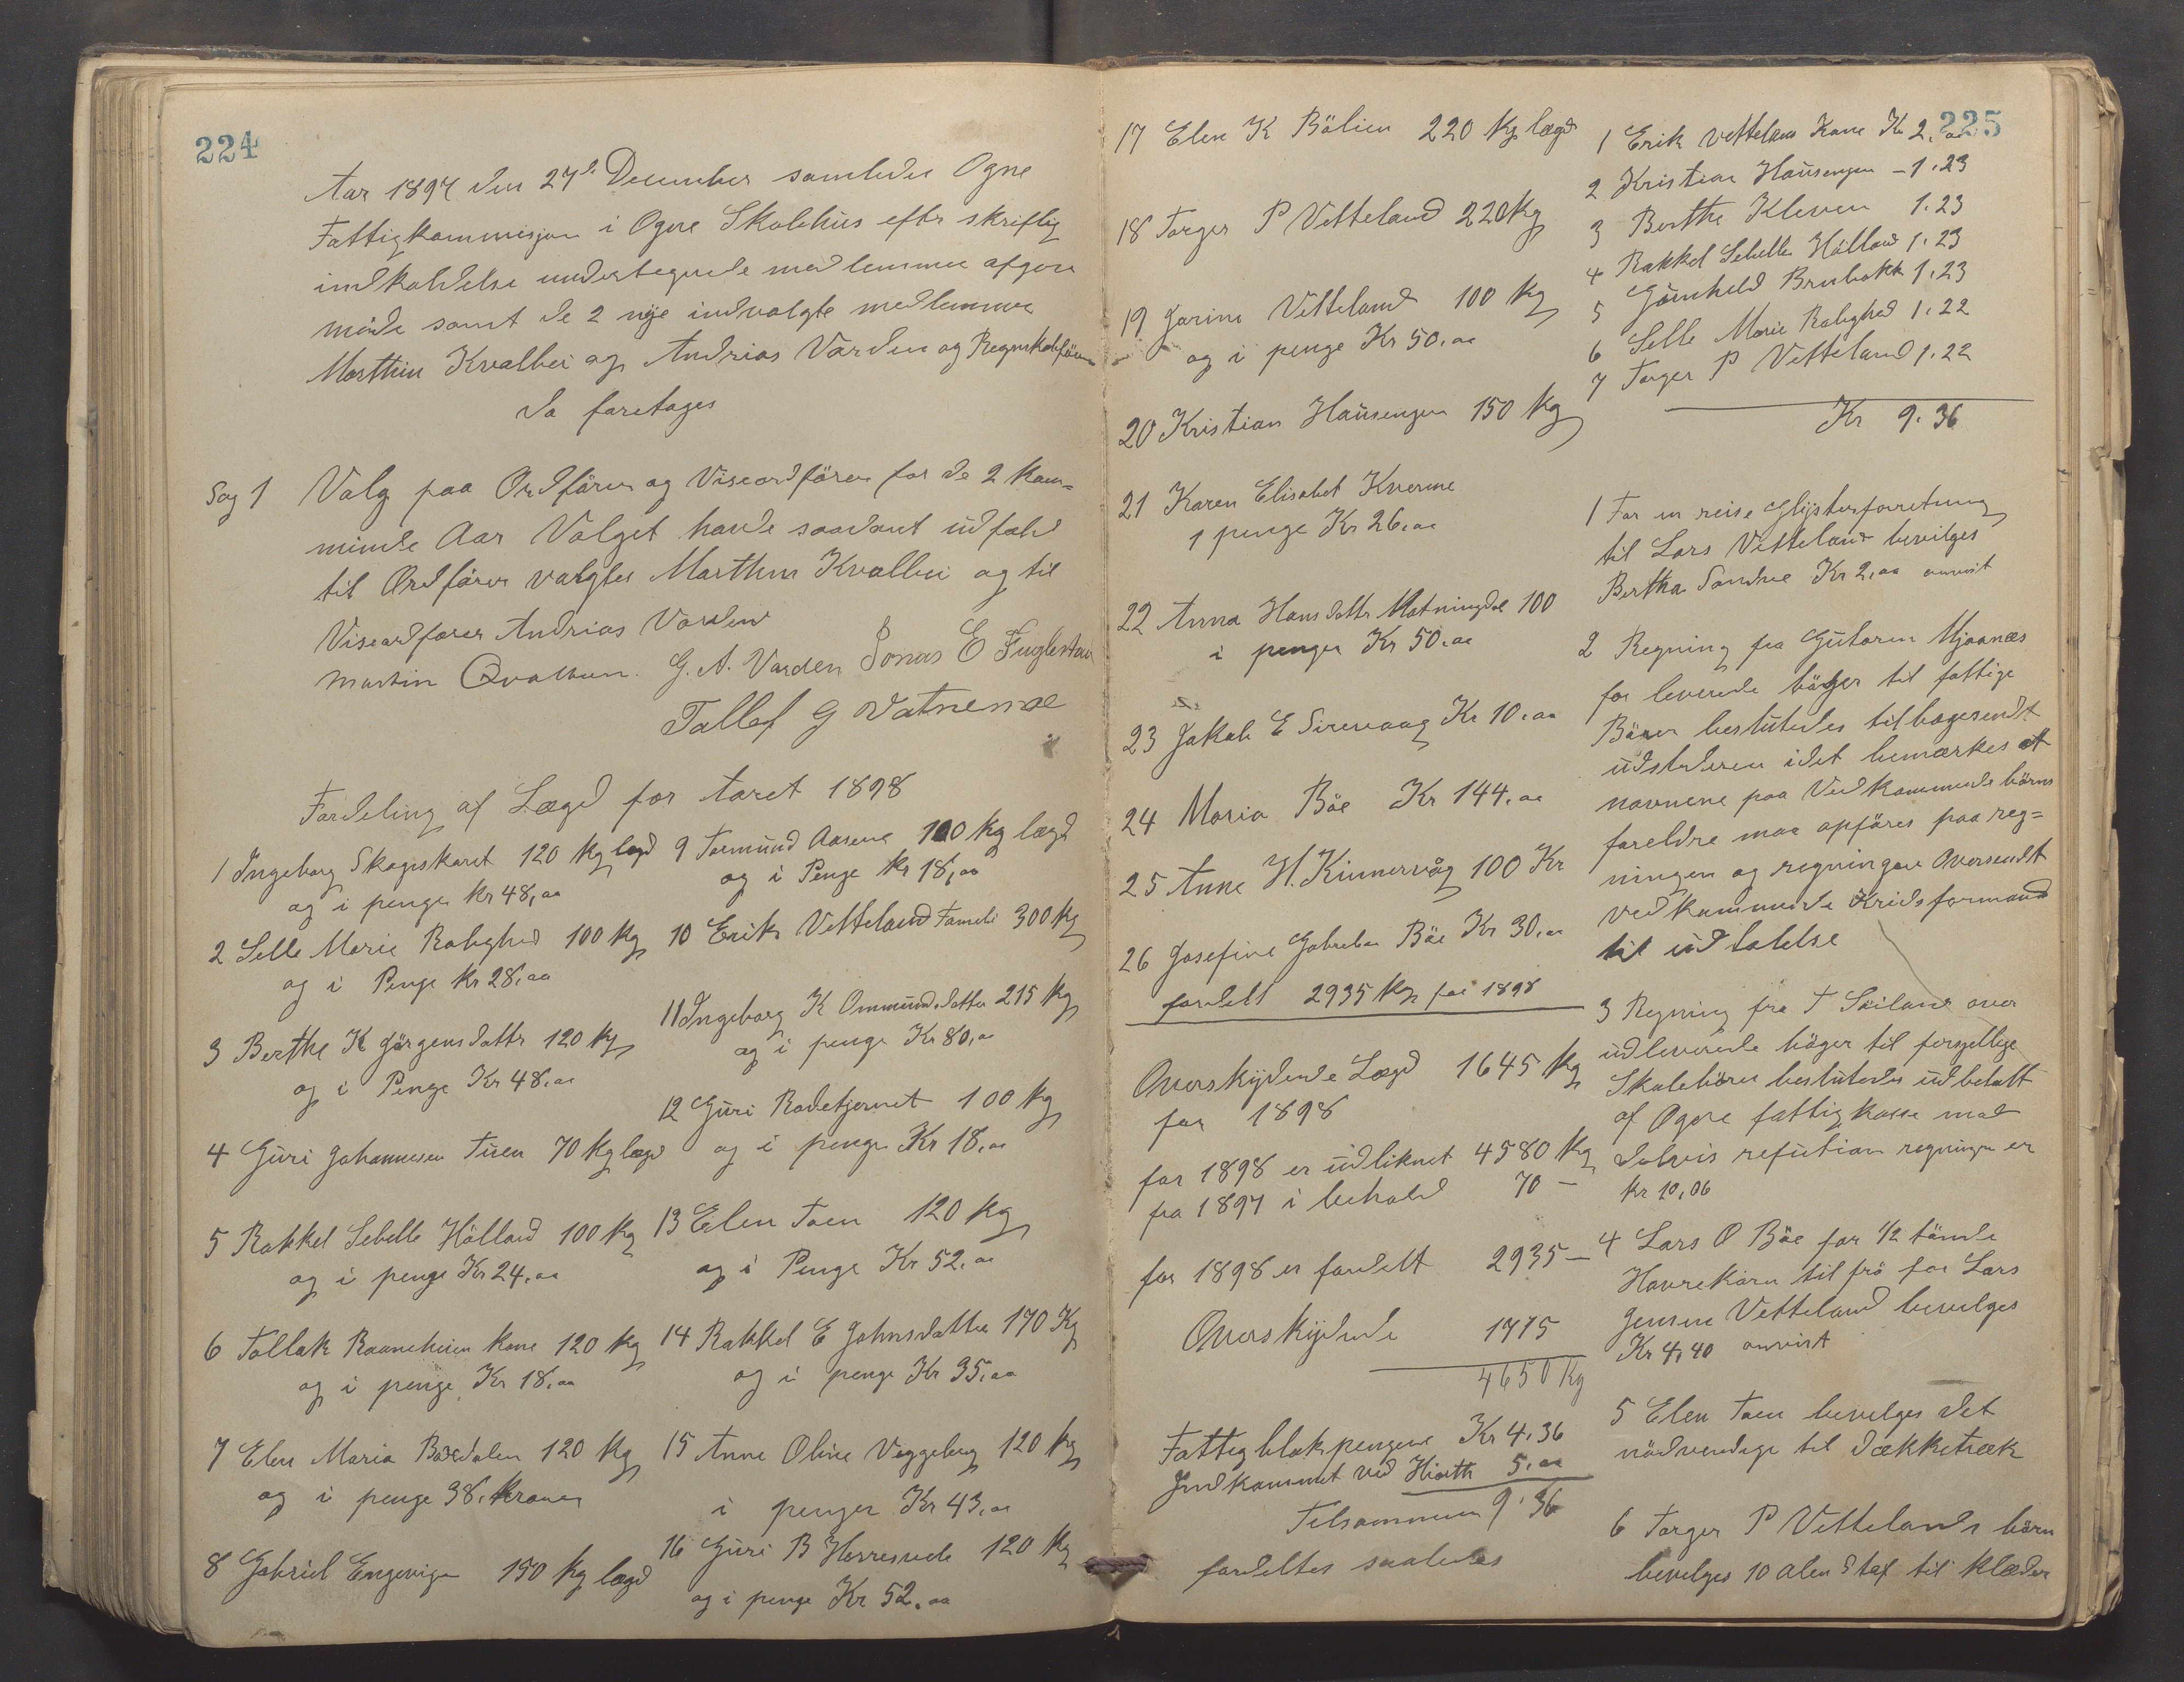 224
Aar 1897 den 27de December samledes Ogne
Fattigkommisjon i Ogne Skolehus efter skriftlig
indkaldelse undertegnede medlemmer afgaa
ende samt de 2 nye indvalgte medlemmer
Marthin Kvalbei og Andrias Varden og Regnskabsförer
da foretages
Sag 1 Valg paa Ordförer og Viseordförer for de 2 kom=
mende Aar Valget havde saadant udfald
til Ordförer valgtes Marthin Kvalbei og til
Viseordförer Andrias Varden
Martin G. A. Varden Jonas E Fuglestad
Tallef G Vatnemoe
Fordeling af Lægd for Aaret 1898
1 Ingeborg Skogiskaret 120 kg lægd
og i penge kr 48,00
2 Selle Marie Rolighed 100 kg
og i Penge kr 28,00
3 Berthe K Jörgensdatter 120 kg
og i Penge Kr 48.00
4 Guri Johannesen Tuen 70 kg lægd
5 Rakkel Sebelle Hölland 100 kg
og i penge Kr 24,00
6 Tollak Rauneheien kone 120 kg
og i penge Kr 18,00
7 Elen Maria 120 kg
og i penge 38, kroner
8 Gabriel Engevign 150 kg lægd
9 Tormund Aasene 100 kg lægd
og i Penge kr 18,00
10 Erik Vetteland Fameli 300 kg
11 Ingeborg K Ommundsdatter 215 kg
og i penge Kr 80,00
12 Guri Rodetjernet 100 kg
og i penge Kr 18,00
13 Elen Toen 120 kg
og i Penge Kr 52,00
14 Rakkel E Johnsdatter 170 Kg
og i penge Kr 35,00
15 Anne Oline Veggeberg 120 kg
i penger Kr 43,00
16 Guri B 120 kg
og i penge Kr 52,00
225
17 Elen K Bölien 220 kg lægd
18 Torger P Vetteland 220 kg
19 Jorine Vetteland 100 kg
og i penge Kr 50,00
20 Kristian Hausengen 150 kg
21 Karen Elisabet Kverme
i penge Kr 26,00
22 Anna Hansdatter Matningdal 100
i penger Kr 50,00
23 Jakob E Sirevaag Kr 10,00
24 Maria Böe Kr 144,00
25 Anne H. Kinnervåg 100 Kr
26 Josefine Gabrelsen Böe Kr 30,00
fordelt 2935 kg for 1898
Overskydende Lægd 1645 kg
for 1898
for 1898 er udliknet 4580 kg
fra 1897 i behold 70 —
for 1898 er fordelt 2935 —
Overskydende 1715
4650 Kg
Fattigblokpengene Kr 4,36
Indkommet ved 5,00
Tilsammen 9.36
fordeltes saaledes
1 Erik Vetteland Kone Kr 2,00
2 Kristian Hausengen - 1.23
3 Berthe Kleven 1.23
4 Rakkel Sebelle Hölland 1.23
5 Gunhild Brubakk 1.23
6 Selle Marie Rolighed 1.22
7 Torger P Vetteland 1.22
Kr 9.36
1 For en reise Glysterforretning
til Lars Vetteland bevilges
Bertha Kr 2,00 anvist
2 Regning fra Gutorm Mjaanes
for leverede böger til fattige
Börn besluttedes tilbagesendt
udstederen idet bemærkes at
navnene paa Vedkommende börns
foreldre maa opföres paa reg=
ningen og regningen oversendt
vedkommende Kridsformand
til udtalelse
3 Regning fra T Söiland over
udleverede böger til forskjellige
Skolebörn besluttedes udbetalt
af Ogne fattigkasse mod
delvis refution regningen er
kr 10,06
4 Lars O Böe for 1/2 tönde
Havrekorn til frö for Lars
Jensen Vetteland bevilges
Kr 4,40 anvist
5 Elen Toen bevilges det
nödvendige til Dækketræk
6 Torger P Vettelands börn
bevilges 10 alen Staf til klæder